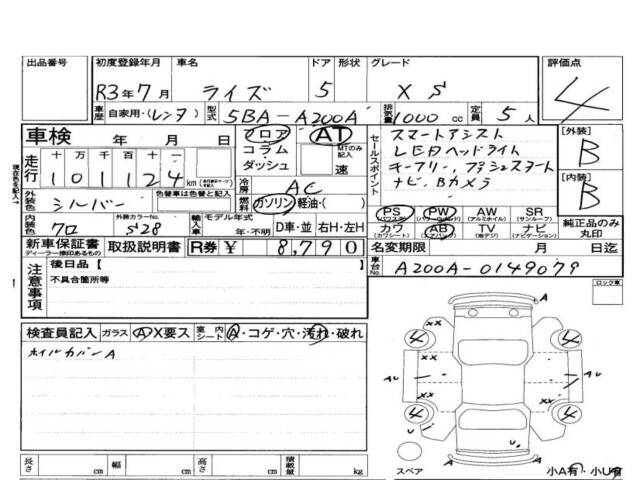 出品番号 初度登録年月 車名 ドア 形状 グレード 評価点
R3年7月 ライズ 5 X S 4
車歴 自家用・(レンタ) 型式 5BA-A200A 排気量 1000cc 定員 5人
車検 年 月 日 フロア AT
コラム MTのみ記入
ダッシュ 速
走行 十万千百十一
101124 km
冷房 AC
外装色 シルバー 色替車は色替と記入
燃料 ガソリン 軽油・( )
内装色 クロ 外装カラーNo. S28 輸入車 モデル年式 年・不明 D車・並 右H・左H
セールスポイント スマートアシスト
LEDヘッドライト
キーフリー,プッシュスタート
ナビ、Bカメラ
PS (パワーステアリング) PW (パワーウィンドウ) AW (アルミホイル) SR (サンルーフ)
カワ (カワシート) AB (エアバッグ) TV (地デジ) ナビ (ナビゲーション)
[外装] B
[内装] B
純正品のみ丸印
新車保証書 ディーラー捺印あるもの 取扱説明書 R券 ¥ 8,790 名変期限 月 日迄
注意事項 後日品【 】
不具合箇所等
車台No. A200A-0149079
ロック車
検査員記入 ガラス A X要ス 室内シート A・コゲ・穴・汚れ・破れ
ホイルカバーA
A
XX
4 4
AU AU
XX XX
4 4
U
A
長さ cm 幅 cm 高さ cm 積載量 kg
スペア 小A有・小U有